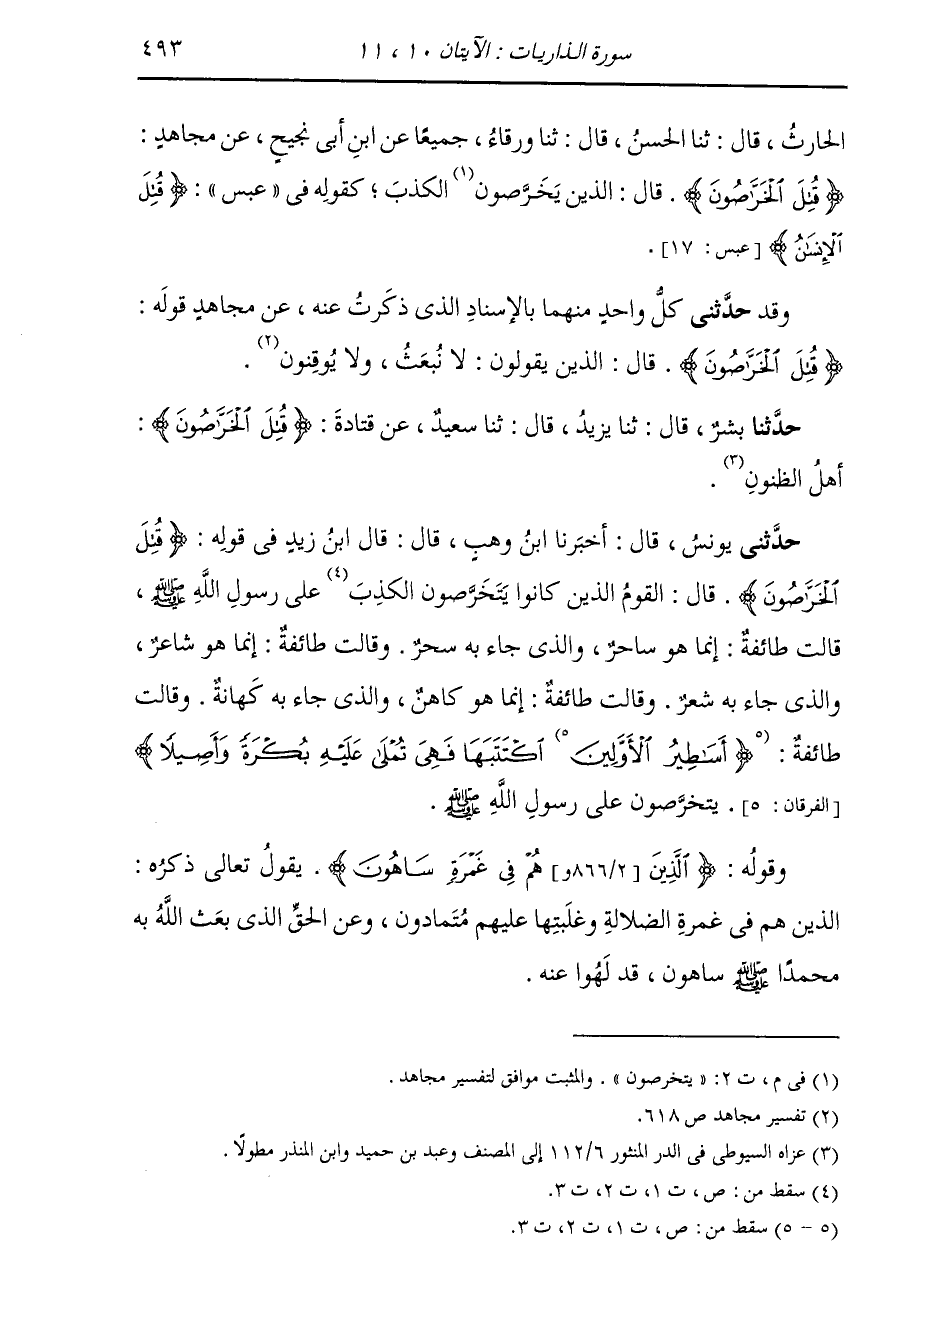 سورة الذاريات : الآيتان ١٠ ، ١١ ٤٩٣
الحارثُ ، قال : ثنا الحسنُ ، قال : ثنا ورقاءُ ، جميعًا عن ابنِ أبى نجيحٍ ، عن مجاهدٍ :
﴿ قُتِلَ ٱلْخَرَّٰصُونَ ﴾ . قال : الذين يَخَرَّصون(١) الكذبَ ؛ كقولِه فى « عبس » : ﴿ قُتِلَ
ٱلْإِنسَٰنُ ﴾ [ عبس : ١٧] .
وقد حدَّثنى كلُّ واحدٍ منهما بالإسنادِ الذى ذكَرتُ عنه ، عن مجاهدٍ قولَه :
﴿ قُتِلَ ٱلْخَرَّٰصُونَ ﴾ . قال : الذين يقولون : لا نُبعَثُ ، ولا يُوقِنون(٢) .
حدَّثنا بشرٌ ، قال : ثنا يزيدُ ، قال : ثنا سعيدٌ ، عن قتادةَ : ﴿ قُتِلَ ٱلْخَرَّٰصُونَ ﴾ :
أهلُ الظنونِ(٣) .
حدَّثنى يونسُ ، قال : أخبَرنا ابنُ وهبٍ ، قال : قال ابنُ زيدٍ فى قولِه : ﴿ قُتِلَ
ٱلْخَرَّٰصُونَ ﴾ . قال : القومُ الذين كانوا يَتَخَرَّصون الكذِبَ(٤) على رسولِ اللَّهِ ﷺ ،
قالت طائفةٌ : إنما هو ساحرٌ ، والذى جاء به سحرٌ . وقالت طائفةٌ : إنما هو شاعرٌ ،
والذى جاء به شعرٌ . وقالت طائفةٌ : إنما هو كاهنٌ ، والذى جاء به كَهانةٌ . وقالت
طائفةٌ : (٥﴿ أَسَٰطِيرُ ٱلْأَوَّلِينَ ٥) ٱكْتَتَبَهَا فَهِىَ تُمْلَىٰ عَلَيْهِ بُكْرَةً وَأَصِيلًا ﴾
[ الفرقان : ٥] . يتخرَّصون على رسولِ اللَّهِ ﷺ .
وقولُه : ﴿ ٱلَّذِينَ [٨٦٦/٢و] هُمْ فِى غَمْرَةٍ سَاهُونَ ﴾ . يقولُ تعالى ذكرُه :
الذين هم فى غمرةِ الضلالةِ وغلَبتِها عليهم مُتَمادون ، وعن الحقِّ الذى بعَث اللَّهُ به
محمدًا ﷺ ساهون ، قد لَهُوا عنه .
(١) فى م ، ت ٢: « يتخرصون » . والمثبت موافق لتفسير مجاهد .
(٢) تفسير مجاهد ص ٦١٨.
(٣) عزاه السيوطى فى الدر المنثور ١١٢/٦ إلى المصنف وعبد بن حميد وابن المنذر مطولًا .
(٤) سقط من : ص ، ت ١، ت ٢، ت ٣.
(٥ – ٥) سقط من : ص ، ت ١، ت ٢، ت ٣.